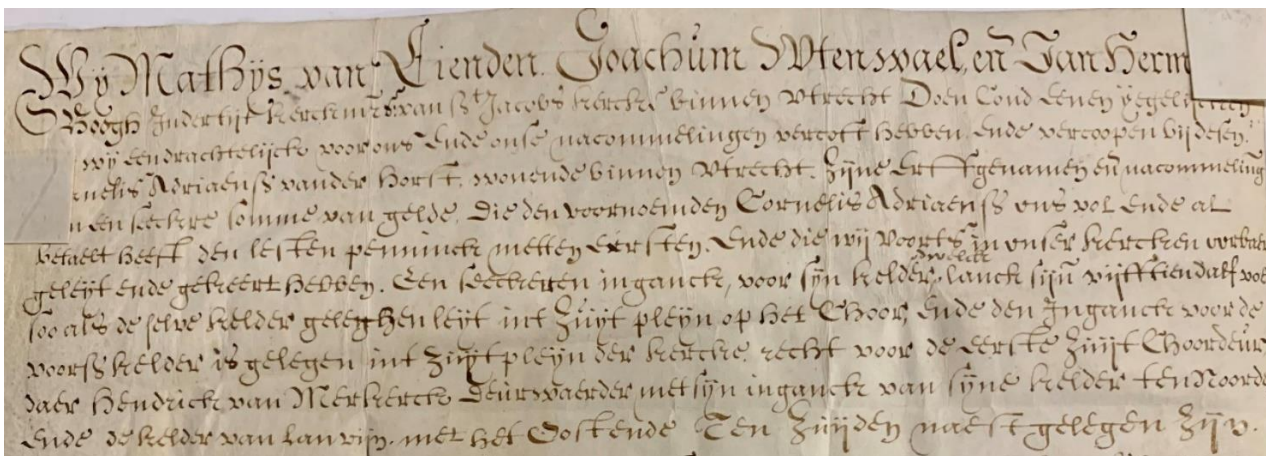 Wij Mathijs van Lienden. Joachum Wtenwael, en̄ Jan Herm
Hoogh Indertijt kerckm̄rs van St Jacobs kercke binnen Vtrecht Doen Cond eenen yegelijcken
wij eendrachtelijcke voor ons ende onse nacommelingen vercoft hebben, ende vercoopen bij desen,
nelis Adriaenss vander Horst, wonende binnen Vtrecht, Zijne erffgenamen en̄ nacommeling
een seeckere somme van gelde, die den voornoemden Cornelis Adriaenss ons vol ende al
betaelt heeft den lesten penninck metten eersten, ende die wij voorts in onser kercken oorbaer
geleyt ende gekeert hebben. Een seeckeren inganck, voor syn kelder, welcke lanck syn̄ vijfftiendalf voe
soo als de selve kelder geleghen leyt int Zuyt pleyn op het Choor, ende den Inganck voor de
voorss kelder is gelegen int Zuytpleyn der kercke, recht voor de eerste Zuyt Choordeur
daer Hendrick van Merkerck Deurwaerder met syn inganck van syne kelder ten Noorde
ende de kelder van Lanwijn met het Oostende Ten Zuijden naest gelegen Zijn.